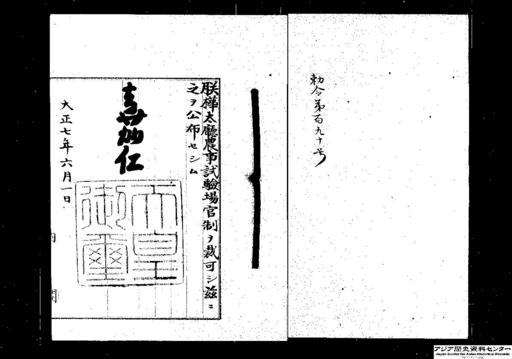 勅令第百九十号
朕樺太廳農事試驗場官制ヲ裁可シ茲ニ
之ヲ公布セシム
嘉仁
天皇御璽
大正七年六月一日
内閣
アジア歴史資料センター
Japan Center for Asian Historical Records